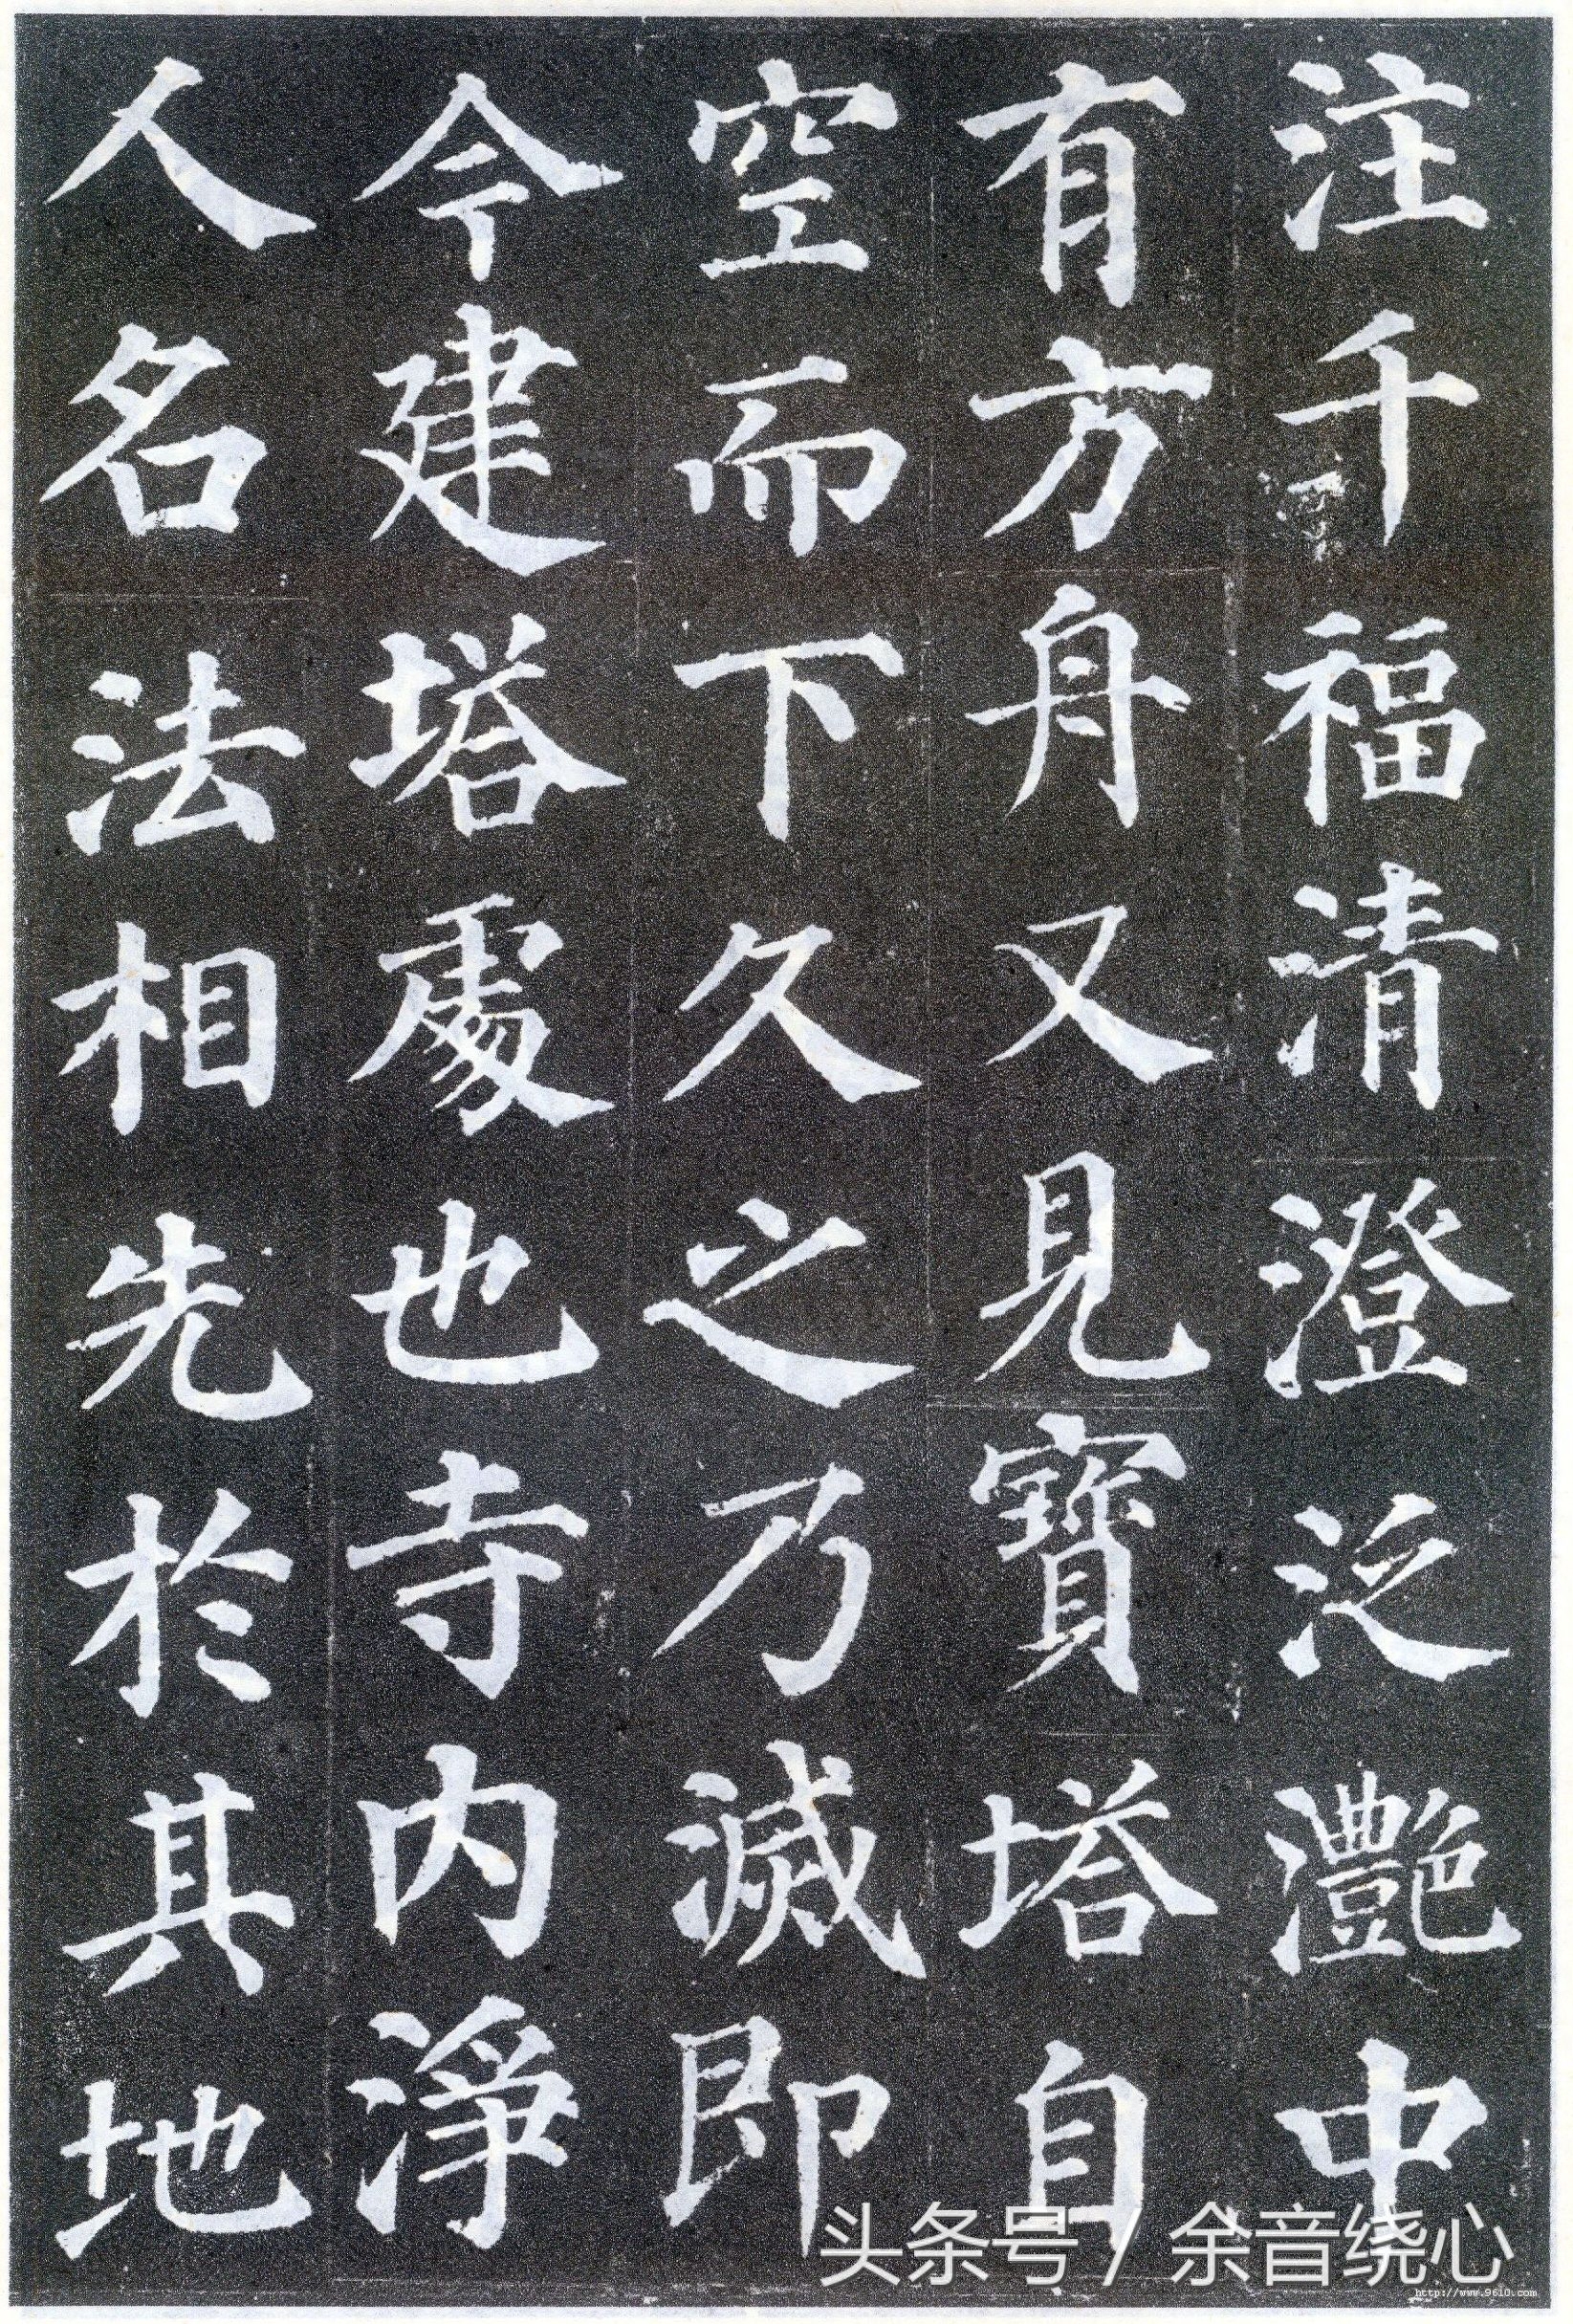 注千福清澄泛灧中
有方舟又見寶塔自
空而下久之乃滅即
今建塔處也寺内淨
人名法相先於其地
头条号 / 余音绕心
http://www.9610.com